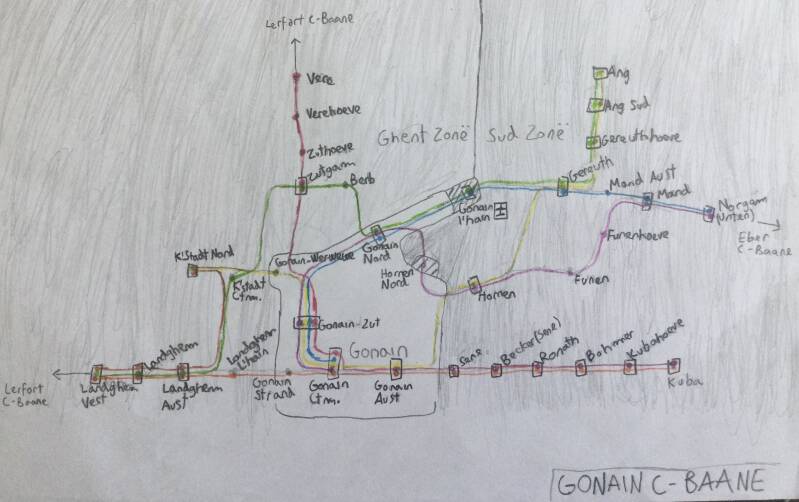 Lerfort C-Baane
Vere
Verehoeve
Zuthoeve
Zutgarn
Berb
Ghent Zonë
Sud Zonë
Ang
Ang Sud
Gereuthhoeve
Gereuth
Mand Aust
Mand
Norgam
(Unten)
Eber
C-Baane
Gonain
l'hain
Gonain
Nord
Hornen
Nord
Funenhoeve
Funen
Hornen
K'Stadt Nord
K'stadt
Ctrm.
Gonain-Zut
Gonain
Lerfort
C-Baane
Landghem
Vest
Landghem
Landghem
Aust
Landghem
l'hain
Gonain
Strand
Gonain
Ctrm.
Gonain
Aust
Sene
Becker(Sene)
Ronath
Bohmer
Kubahoeve
Kuba
GONAIN C-BAANE